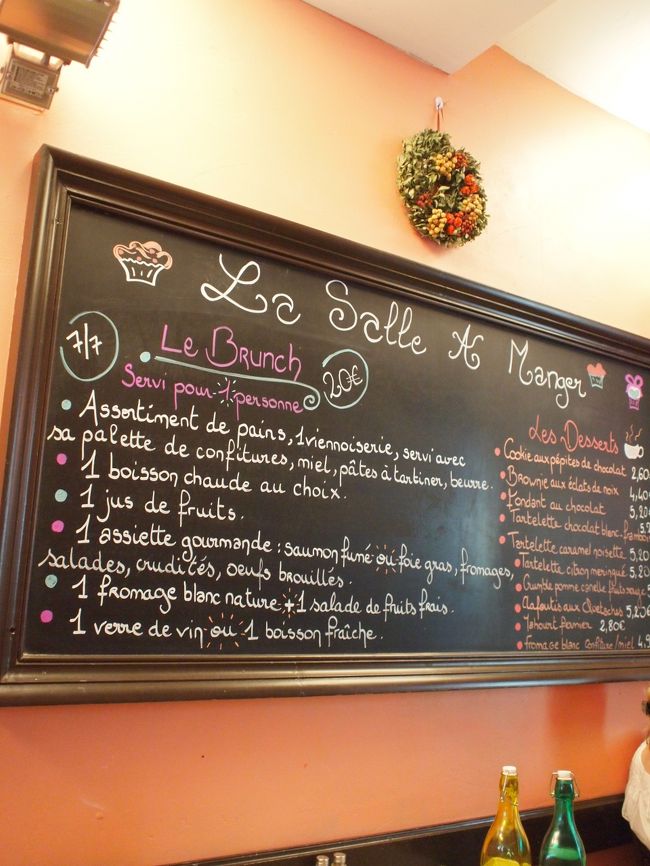 La Salle A Manger
7/7
Le Brunch
20€
Servi pour 1 personne
Assortiment de pains, 1 viennoiserie, servi avec
sa palette de confitures, miel, pâtes à tartiner, beurre.
1 boisson chaude au choix.
1 jus de fruits.
1 assiette gourmande : saumon fumé ou foie gras, fromages,
salades, crudités, oeufs brouillés.
1 fromage blanc nature + 1 salade de fruits frais.
1 verre de vin ou 1 boisson fraîche.
Les Desserts
Cookie aux pépites de chocolat 2,60
Brownie aux éclats de noix 4,40
Fondant au chocolat 5,20
Tartelette chocolat blanc framboise
Tartelette caramel noisette 5,20
Tartelette citron meringué 5,20
Crumble pomme canelle fruits rouges
Clafoutis aux 5,20€
Yahourt fermier 2,80€
Fromage blanc confiture/miel